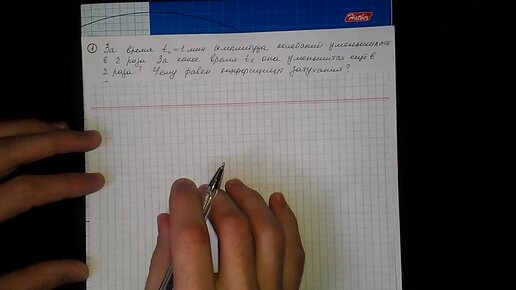 Hatber
① За время t₀ = 1 мин амплитуда колебаний уменьшилась
в 2 раза За какое время t₁ она уменьшится ещё в
2 раза? Чему равен коэффициент затухания?